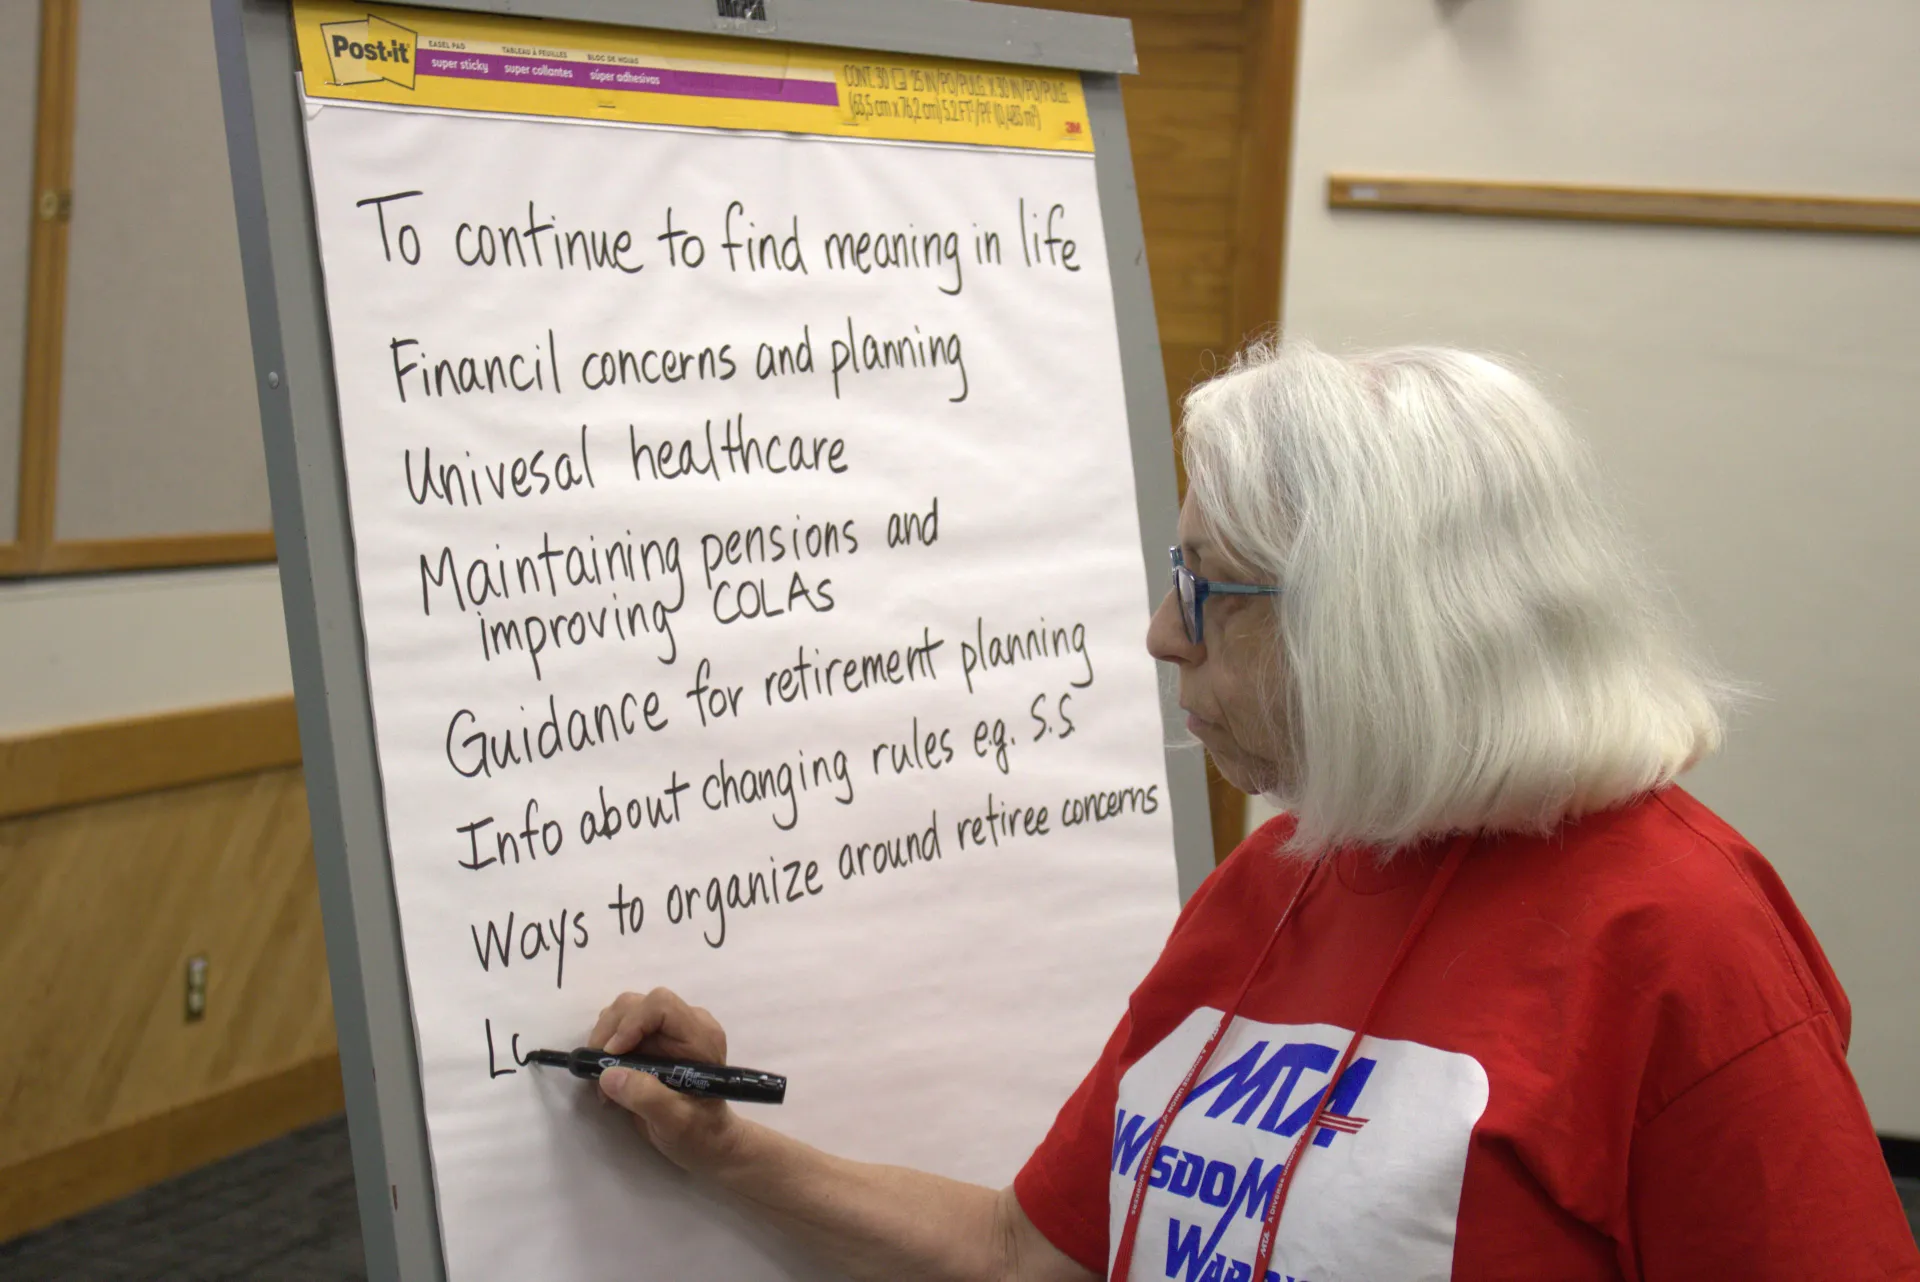 Post-it
EASEL PAD TABLEAU À FEUILLES BLOC DE HOJAS
super sticky super collantes súper adhesivas
CONT. 30 25 IN/PO/PULG. X 30 IN/PO/PULG.
(63,5 cm x 76,2 cm) 5.2 FT²/PI² (0,483 m²)
3M
To continue to find meaning in life
Financil concerns and planning
Univesal healthcare
Maintaining pensions and
improving COLAs
Guidance for retirement planning
Info about changing rules e.g. S.S.
Ways to organize around retiree concerns
MTA
WISDOM